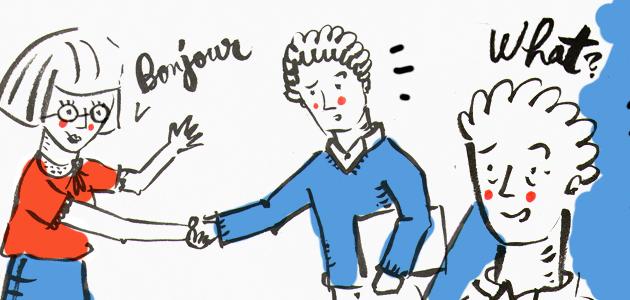 Bonjour
What?